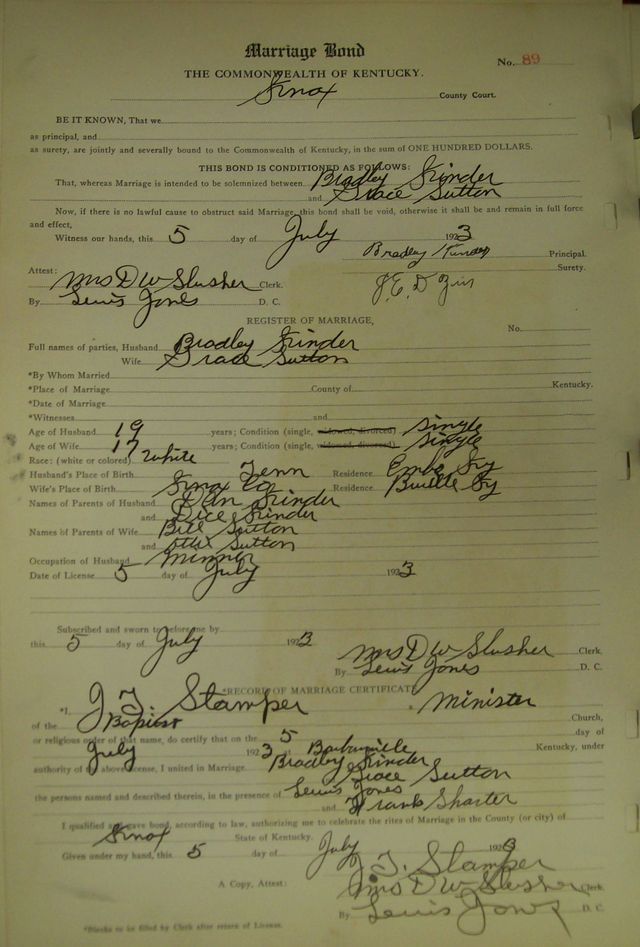 Marriage Bond
No. 89
THE COMMONWEALTH OF KENTUCKY.
Knox County Court.
BE IT KNOWN, That we
as principal, and
as surety, are jointly and severally bound to the Commonwealth of Kentucky, in the sum of ONE HUNDRED DOLLARS.
THIS BOND IS CONDITIONED AS FOLLOWS:
That, whereas Marriage is intended to be solemnized between Bradley Grinder
and Grace Sutton
Now, if there is no lawful cause to obstruct said Marriage, this bond shall be void, otherwise it shall be and remain in full force
and effect,
Witness our hands, this 5 day of July 1923
Bradley Principal.
Attest: Surety.
Mrs D W Slusher Clerk.
By Lewis Jones D. C.
REGISTER OF MARRIAGE,
No.
Full names of parties, Husband Bradley Grinder
Wife Grace Sutton
*By Whom Married
*Place of Marriage County of Kentucky.
*Date of Marriage
*Witnesses and
Age of Husband 19 years; Condition (single, widowed, divorced) Single
Age of Wife 17 years; Condition (single, widowed, divorced) Single
Race: (white or colored) White
Husband's Place of Birth Tenn Residence Ky
Wife's Place of Birth Knox Co Residence Ky
Names of Parents of Husband Dan Grinder
and Dice Grinder
Names of Parents of Wife Bill Sutton
and Sutton
Occupation of Husband Minner
Date of License 5 day of July 1923
Subscribed and sworn to before me by
this 5 day of July 1923
Mrs D W Slusher Clerk.
By Lewis Jones D. C.
*RECORD OF MARRIAGE CERTIFICATE
*I, J. T. Stamper a Minister
of the Baptist Church,
or religious order of that name, do certify that on the 5 day of
July 1923 at Barbourville Kentucky, under
authority of the above license, I united in Marriage Bradley Grinder
Grace Sutton
the persons named and described therein, in the presence of Lewis Jones
and Frank Sharter
I qualified and gave bond, according to law, authorizing me to celebrate the rites of Marriage in the County (or city) of
Knox State of Kentucky.
Given under my hand, this 5 day of July 1923
J. T. Stamper
A Copy, Attest: Mrs D W Slusher Clerk
By Lewis Jones D. C.
*Blanks to be filled by Clerk after return of License.